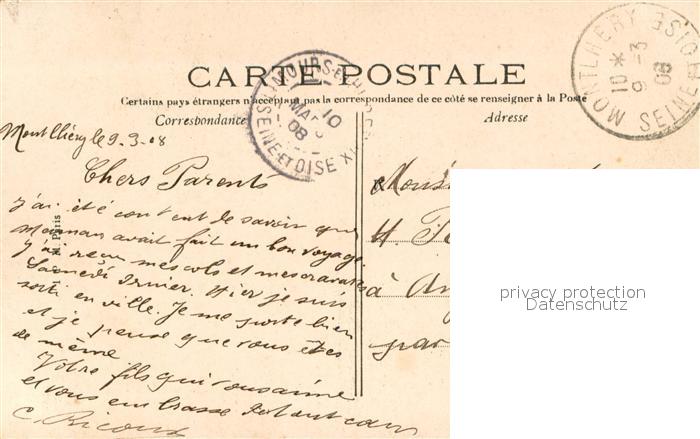 CARTE POSTALE
Certains pays étrangers n'acceptant pas la correspondance de ce côté se renseigner à la Poste
Correspondance
Adresse
MONTLHERY
10 *
9 -3
08
SEINE
LIMOURS
10
MARS
08
SEINE ET OISE
Montlhéry le 9.3.08
Chers Parents
J'ai été content de savoir que
Maman avait fait un bon voyage.
J'ai reçu mes cols et mes cravates
Samedi dernier. Hier je suis
sorti en ville. Je me porte bien
et je pense que vous êtes
de même
Votre fils qui vous aime
et vous embrasse de tout cœur
C. Ricoux
Paris
à
par
privacy protection
Datenschutz